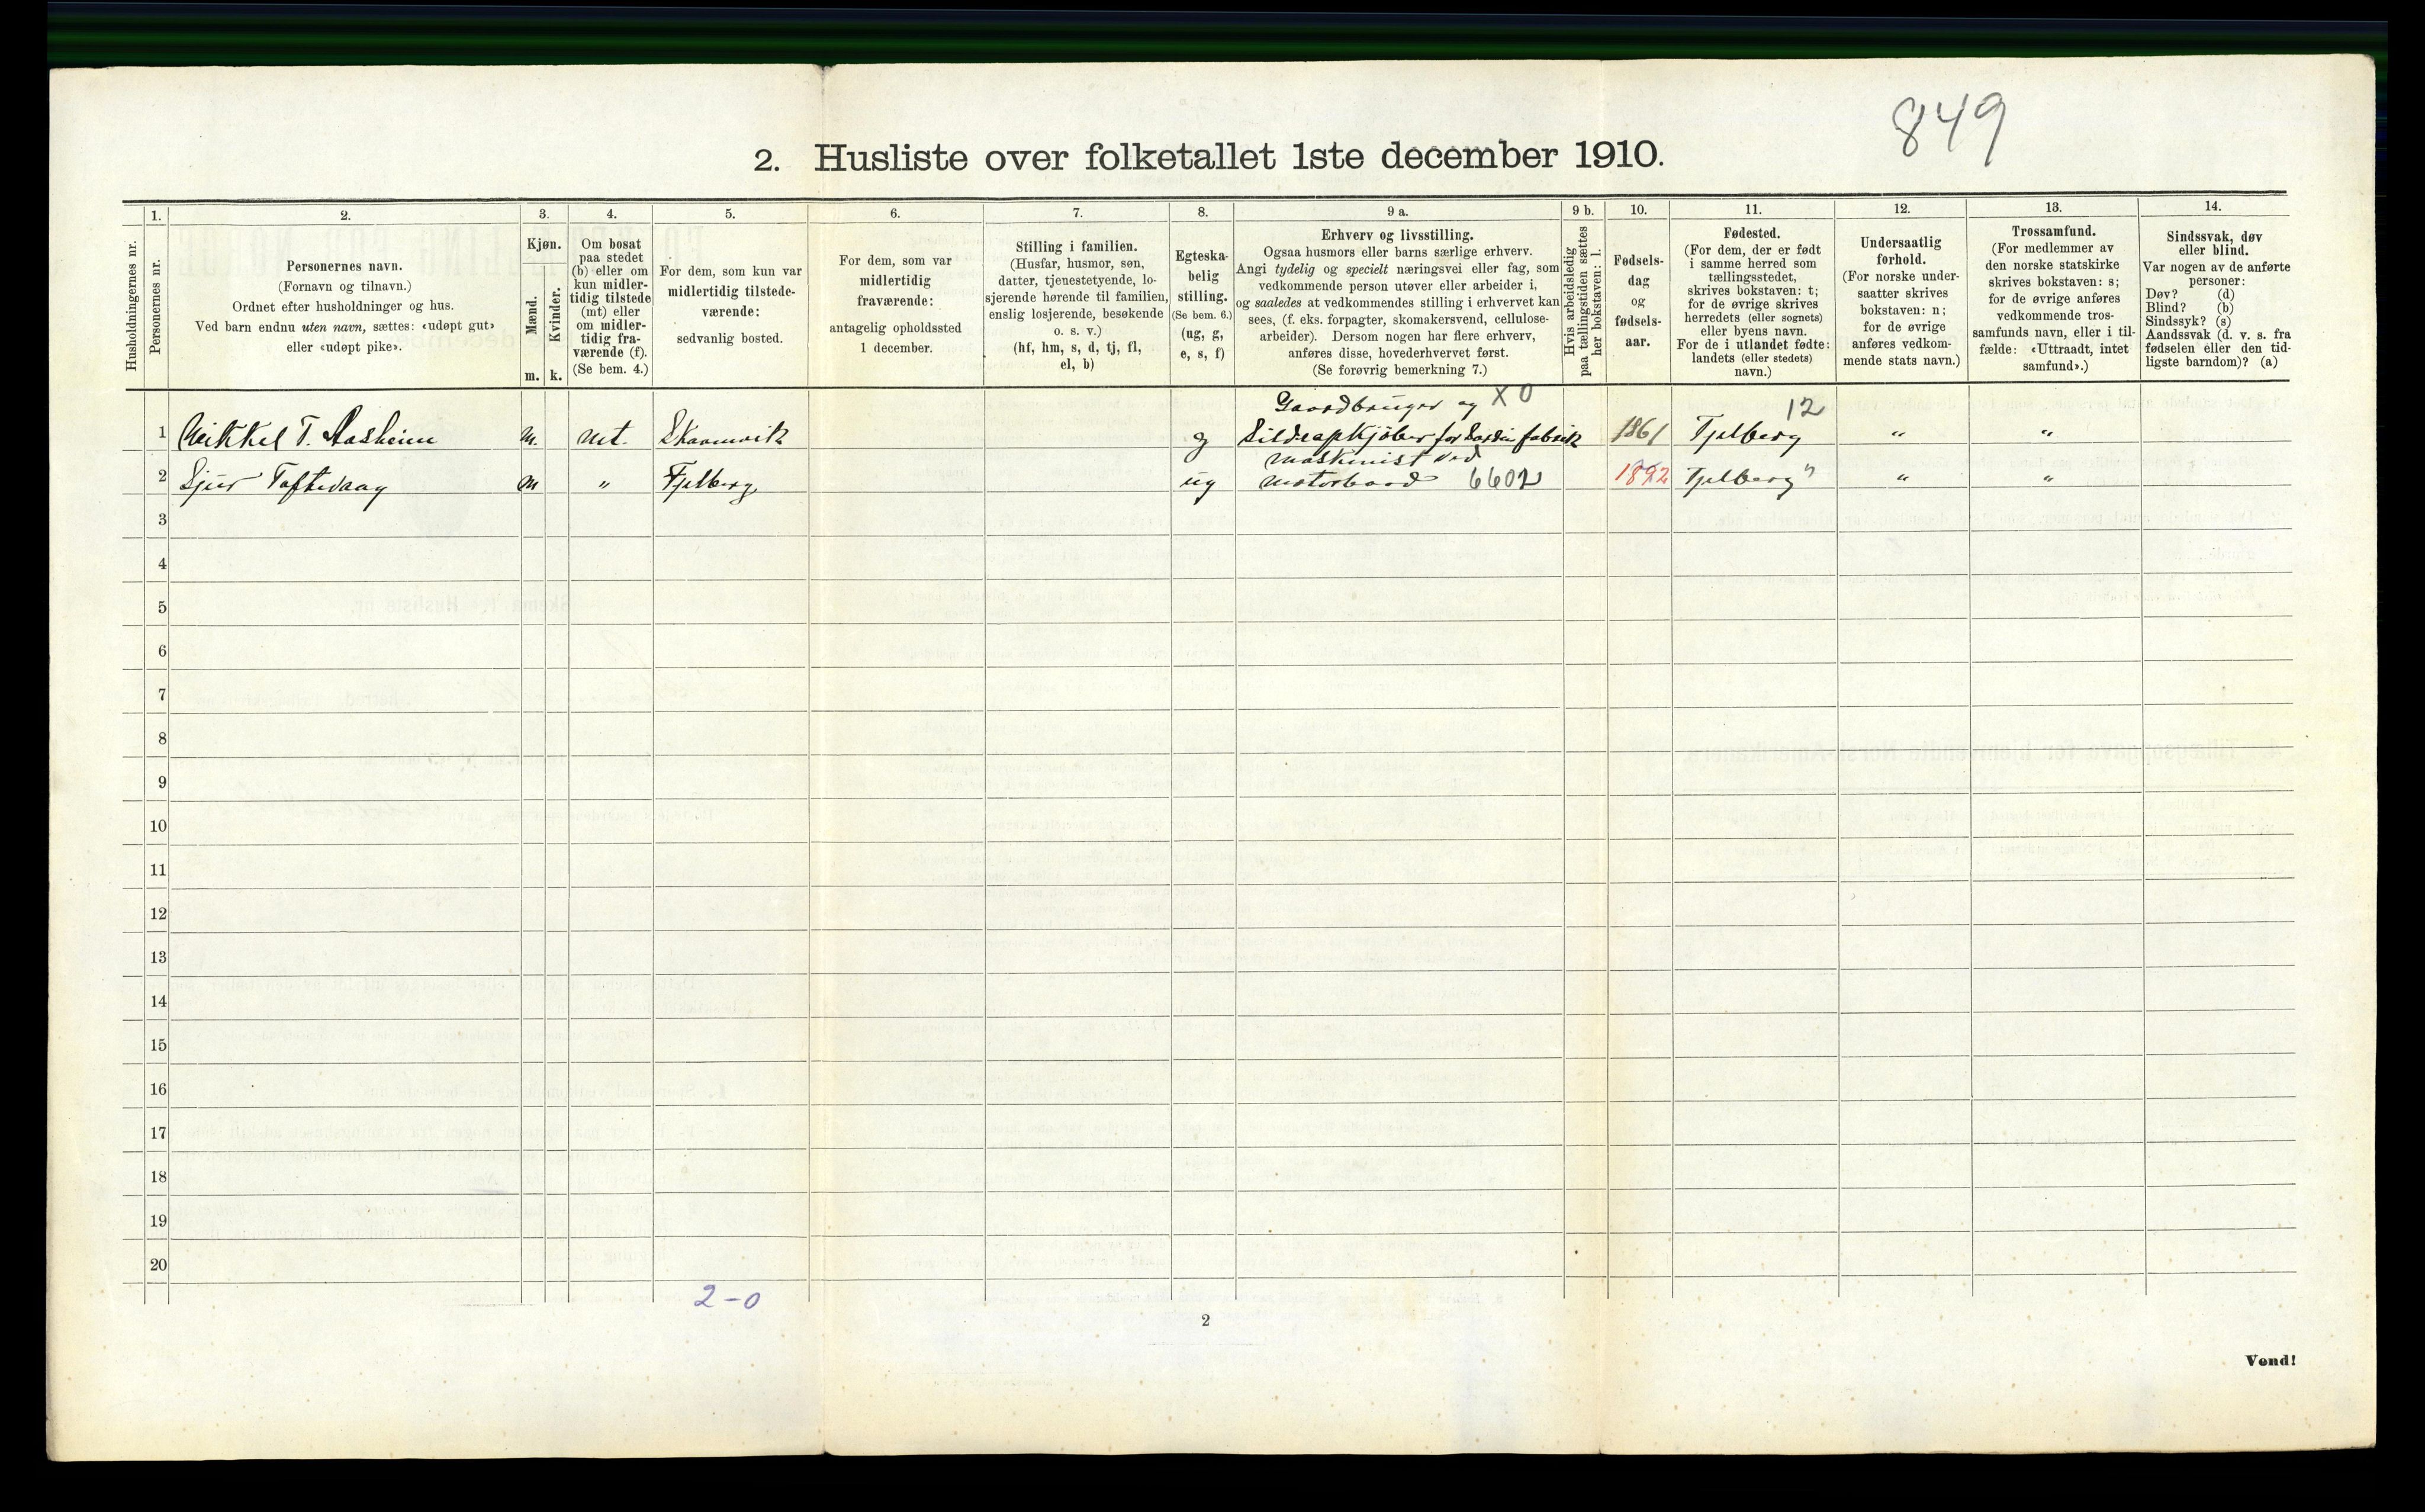 849
2. Husliste over folketallet 1ste december 1910.
Husholdningernes nr.
1.
Personernes nr.
2.
Personernes navn.
(Fornavn og tilnavn.)
Ordnet efter husholdninger og hus.
Ved barn endnu uten navn, sættes: «udøpt gut»
eller «udøpt pike».
3.
Kjøn.
Mænd.
Kvinder.
m. k.
4.
Om bosat
paa stedet
(b) eller om
kun midler-
tidig tilstede
(mt) eller
om midler-
tidig fra-
værende (f).
(Se bem. 4.)
5.
For dem, som kun var
midlertidig tilstede-
værende:
sedvanlig bosted.
6.
For dem, som var
midlertidig
fraværende:
antagelig opholdssted
1 december.
7.
Stilling i familien.
(Husfar, husmor, søn,
datter, tjenestetyende, lo-
sjerende hørende til familien,
enslig losjerende, besøkende
o. s. v.)
(hf, hm, s, d, tj, fl,
el, b)
8.
Egteska-
belig
stilling.
(Se bem. 6.)
(ug, g,
e, s, f)
9 a.
Erhverv og livsstilling.
Ogsaa husmors eller barns særlige erhverv.
Angi tydelig og specielt næringsvei eller fag, som
vedkommende person utøver eller arbeider i,
og saaledes at vedkommendes stilling i erhvervet kan
sees, (f. eks. forpagter, skomakersvend, cellulose-
arbeider). Dersom nogen har flere erhverv,
anføres disse, hovederhvervet først.
(Se forøvrig bemerkning 7.)
9 b.
Hvis arbeidsledig
paa tællingstiden sættes
her bokstaven: l.
10.
Fødsels-
dag
og
fødsels-
aar.
11.
Fødested.
(For dem, der er født
i samme herred som
tællingsstedet,
skrives bokstaven: t;
for de øvrige skrives
herredets (eller sognets)
eller byens navn.
For de i utlandet fødte:
landets (eller stedets)
navn.)
12.
Undersaatlig
forhold.
(For norske under-
saatter skrives
bokstaven: n;
for de øvrige
anføres vedkom-
mende stats navn.)
13.
Trossamfund.
(For medlemmer av
den norske statskirke
skrives bokstaven: s;
for de øvrige anføres
vedkommende tros-
samfunds navn, eller i til-
fælde: «Uttraadt, intet
samfund».)
14.
Sindssvak, døv
eller blind.
Var nogen av de anførte
personer:
Døv? (d)
Blind? (b)
Sindssyk? (s)
Aandssvak (d. v. s. fra
fødselen eller den tid-
ligste barndom)? (a)
Gaardbruger og X 0 12
1 Mikkel T. Aasheim m. mt. Skaanevik g Sildeopkjøber for Sardinfabrik 1861 Fjelberg " "
maskinist ved
2 Sjur Toftevaag m " Fjelberg ug motorbaad 6602 1892 Fjelberg " " "
3
4
5
6
7
8
9
10
11
12
13
14
15
16
17
18
19
20
2-0
2
Vend!